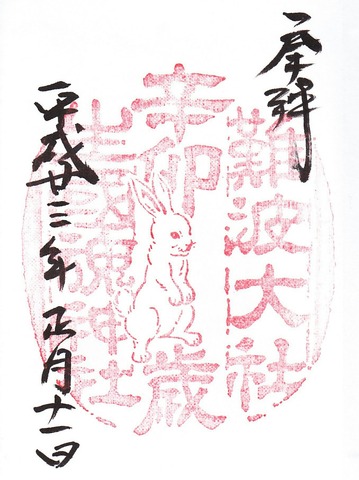 奉拝
難波大社
辛卯
歳
生國魂神社
平成廿三年正月十一日